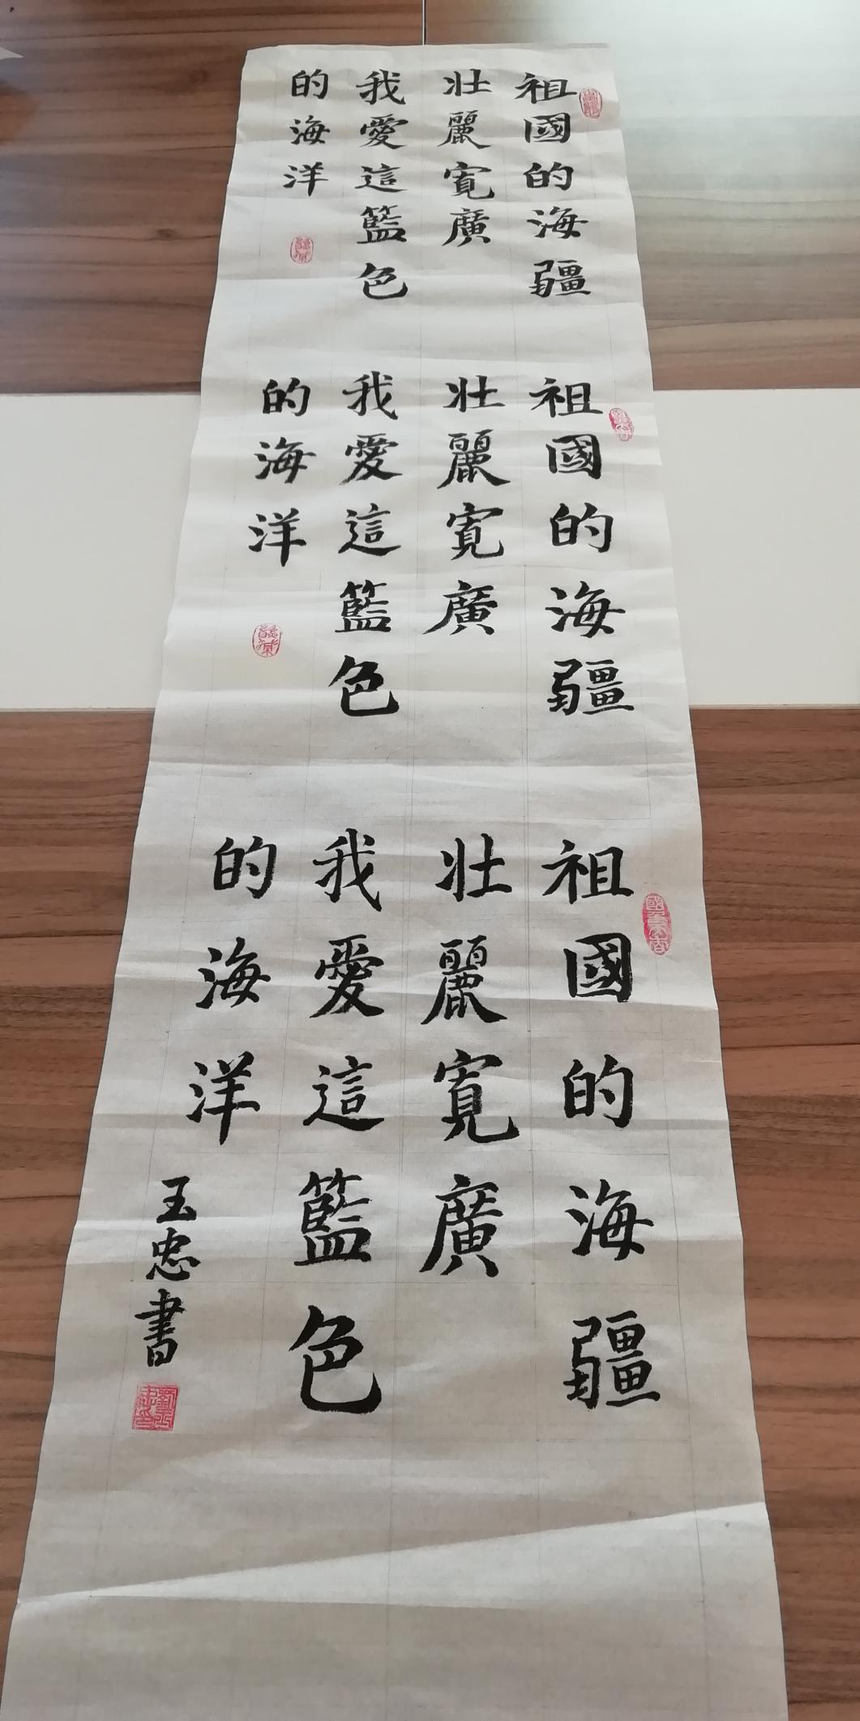 祖國的海疆
壯麗寬廣
我愛這籃色
的海洋
祖國的海疆
壯麗寬廣
我愛這籃色
的海洋
祖國的海疆
壯麗寬廣
我愛這籃色
的海洋
玉忠書